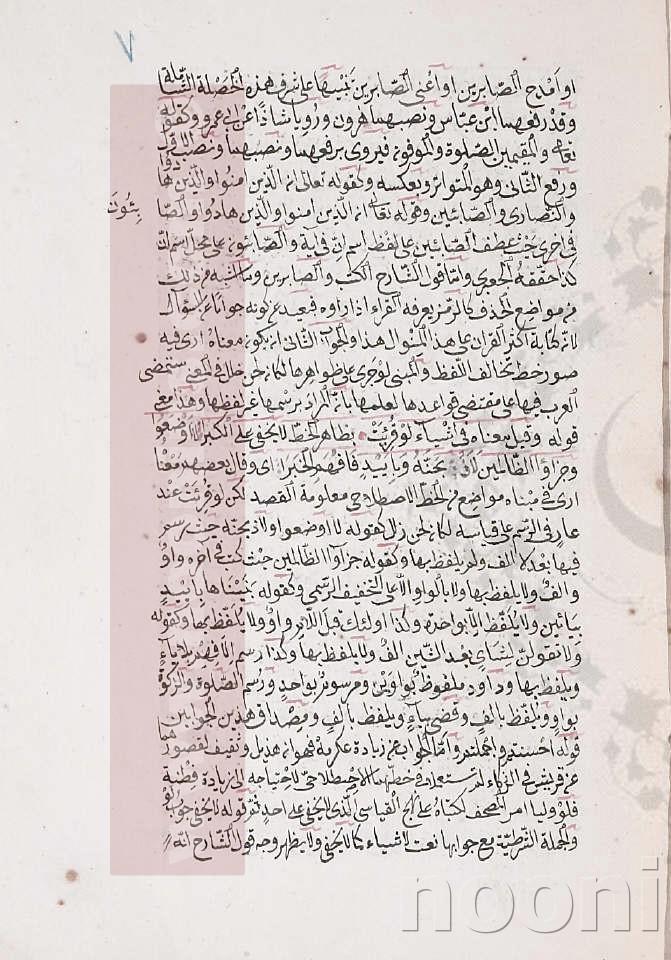 ٧
او امدح الصابرين او اعنى الصابرين تنبيها على شرف هذه الخصلة الشاملة
وقد رفعهما ابن عباس ونصبهما هرون ورويا شاذا عن ابى عمرو وكقوله
تعالى والمقيمين الصلوة والموفون فيروى برفعهما ونصبهما ونصب الاول
ورفع الثانى وهو المتواتر وبعكسه وكقوله تعالى ان الذين امنوا والذين هادوا
والنصارى والصابئين وقوله تعالى ان الذين امنوا والذين هادوا والصا
بئون
فى اخرى عطف الصابئين على لفظ اسم ان فى اية والصابئون على محل اسم ان
كذا حققه الجعبرى واما قول الشارح الكت والصابرين وما اشبه من ذلك
من مواضع الحذف كالرمز يعرفه القراء اذا راوه فبعيد عن كونه جوابا عن سؤال
لان كتابة اكثر القران على هذا المنوال هذا والجواب الثانى ان يكون معناه ارى فيه
صور خط تخالف اللفظ والمبنى لو جرى على ظواهرها لكان لحن خلل فى المعنى ستمضى
العرب فيها على مقتضى قواعدها لعلمها بان المراد برسمها غير لفظها وهذا معنى
قوله وقيل معناه فى اشياء لو قرئت بظاهر الخط لا يخفى على الكبرا لا اوضعوا
وجزاؤا الظالمين لا اذبحنه وباييد فافهم الخبرا اى وقال بعضهم معنا
ارى فى مبناه مواضع من الخط الاصطلاحى معلومة القصد لكن لو قرئت عند
عارف الرسم على قياسه لكان لحن زلل كقوله لا اوضعوا ولا اذبحنه حيث رسم
فيها بعد لا الف ولم يلفظ بها وكقوله جزاؤا الظالمين حيث كتب فى آخره واو
والف ولا يلفظ بها ولا بالواو الا على التخفيف الرسمى وكقوله بنيناها باييد
بيائين ولا يلفظ الا بواحدة وكذا اولئك قبل اللام واو ولا يلفظ بها وكقوله
ولا تقولن لشاى بعد الشين الف ولا يلفظ بها وكذا رسم الافهم بلا ياء
ويلفظ بها وداود ملفوظ بواوين ومرسوم بواحد ورسم الصلوة والزكوة
بواو ويلفظ بالف وقضى بياء ويلفظ بالف ومصداق هذين الجوابين
قوله احسنتم واجملتم واما الجواب عن زيادة عكرمة فهو ان هذيل وثقيف لقصورهما
عن قريش فى الزكاء لم يستعملا فى خطهما الاصطلاحى لاحتياجه الى زيادة فطنة
فلو وليا امر المصحف لكتباه على النهج القياسى الذى لا يخفى على احد ثم قوله لا يخفى جواب لو
والجملة الشرطية مع جوابها نعت لاشياء كما لا يخفى ولا يظهر وجه قول الشارح انه
nooni